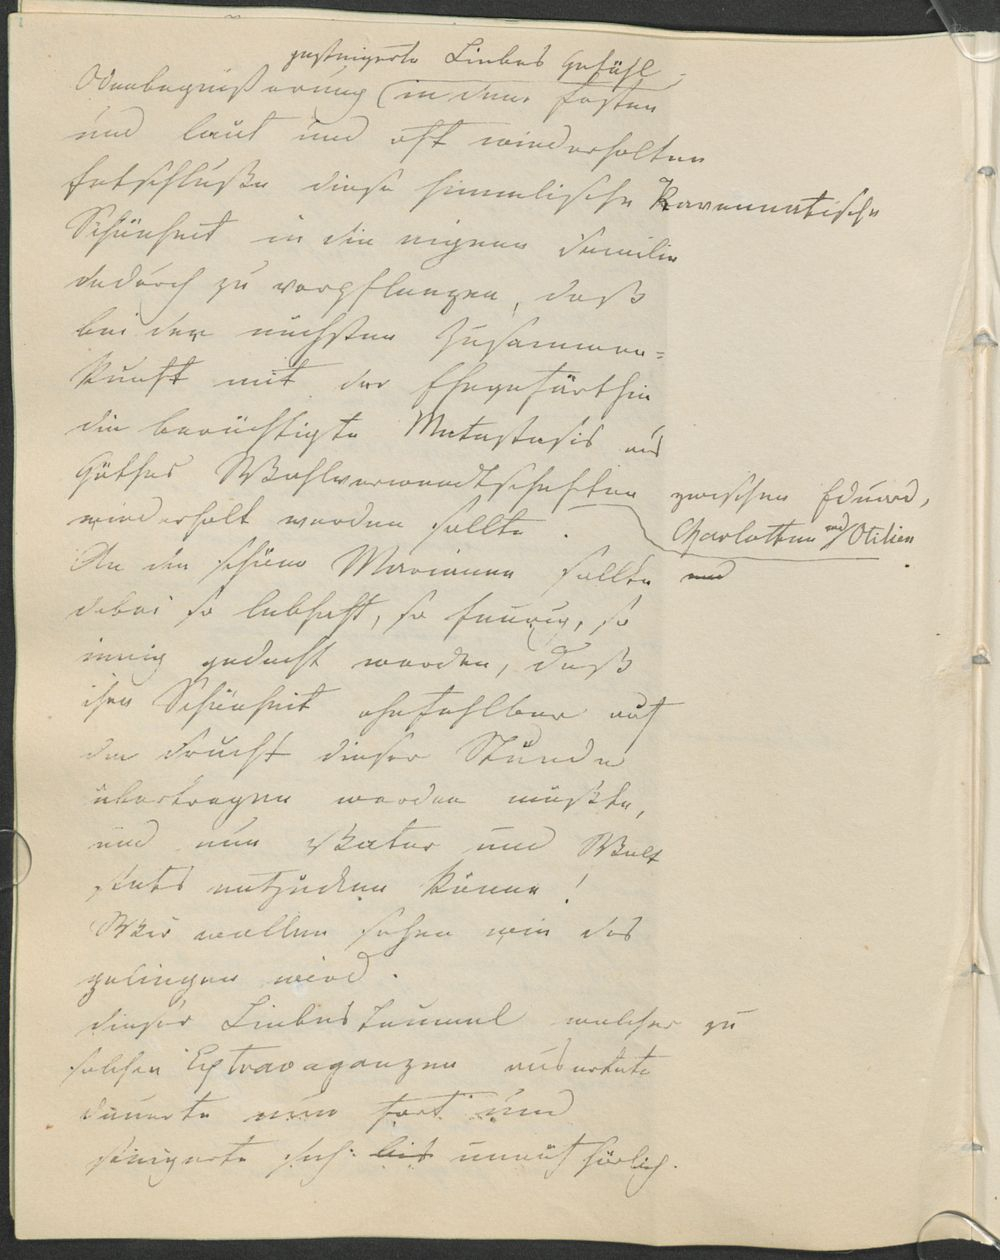 gesteigerte Liebes Gefühl
in dem festen
und laut und oft wiederholten
Entschluße diese himmlische Ravennatische
Schönheit in die eigene Familie
dadurch zu verpflanzen, daß
bei der nächsten Zusammen=
kunft mit der Ehegefärthin
die berüchtigte Metastasis aus
Göthes Wahlverwandtschaften
zwischen Eduard,
Charlotten und Otilien
wiederholt werden sollte.
An die schöne Marianne sollte
dabei so lebhaft, so feurig, so
innig gedacht werden, daß
ihre Schönheit ohnfehlbar auf
die Frucht dieser Stunde
übertragen werden müßte,
und nun Vater und Welt
stets entzücken könne!
Wir wollen sehen wie das
gelingen wird.
dieser Liebes Taumel welcher zu
solchen Extravaganzen ausartete
dauerte nun fort und
steigerte sich bis unaufhörlich.